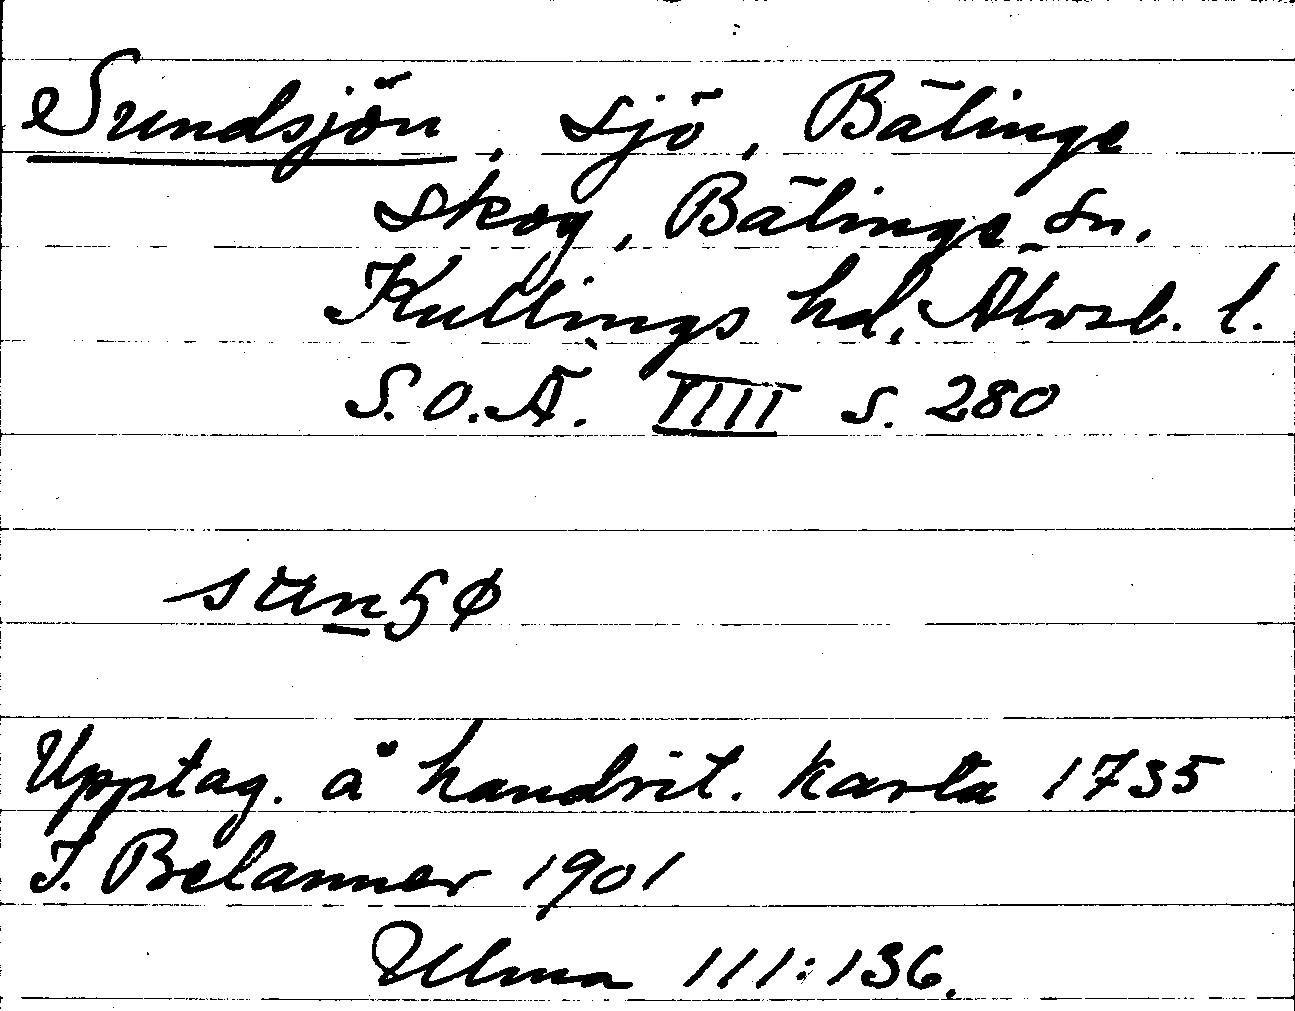 Sundsjön, sjö, Bälinge
skog, Bälinge sn.
Kullings hd, Älvsb. l.
S.O.Ä. VIII s. 280
Upptag. å handrit. karta 1735
J. Belanner 1901
Ulma 111:136.